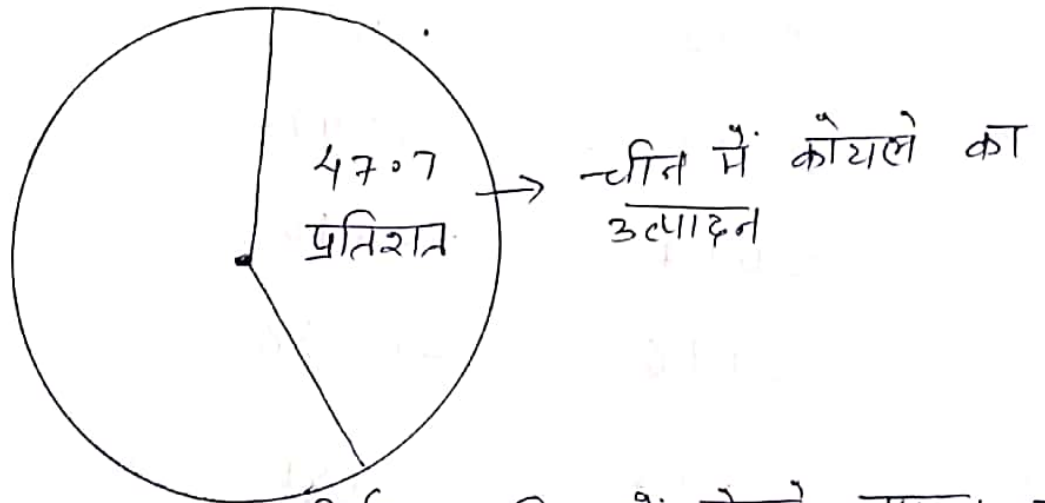 47.7
प्रतिशत
चीन में कोयले का
उत्पादन